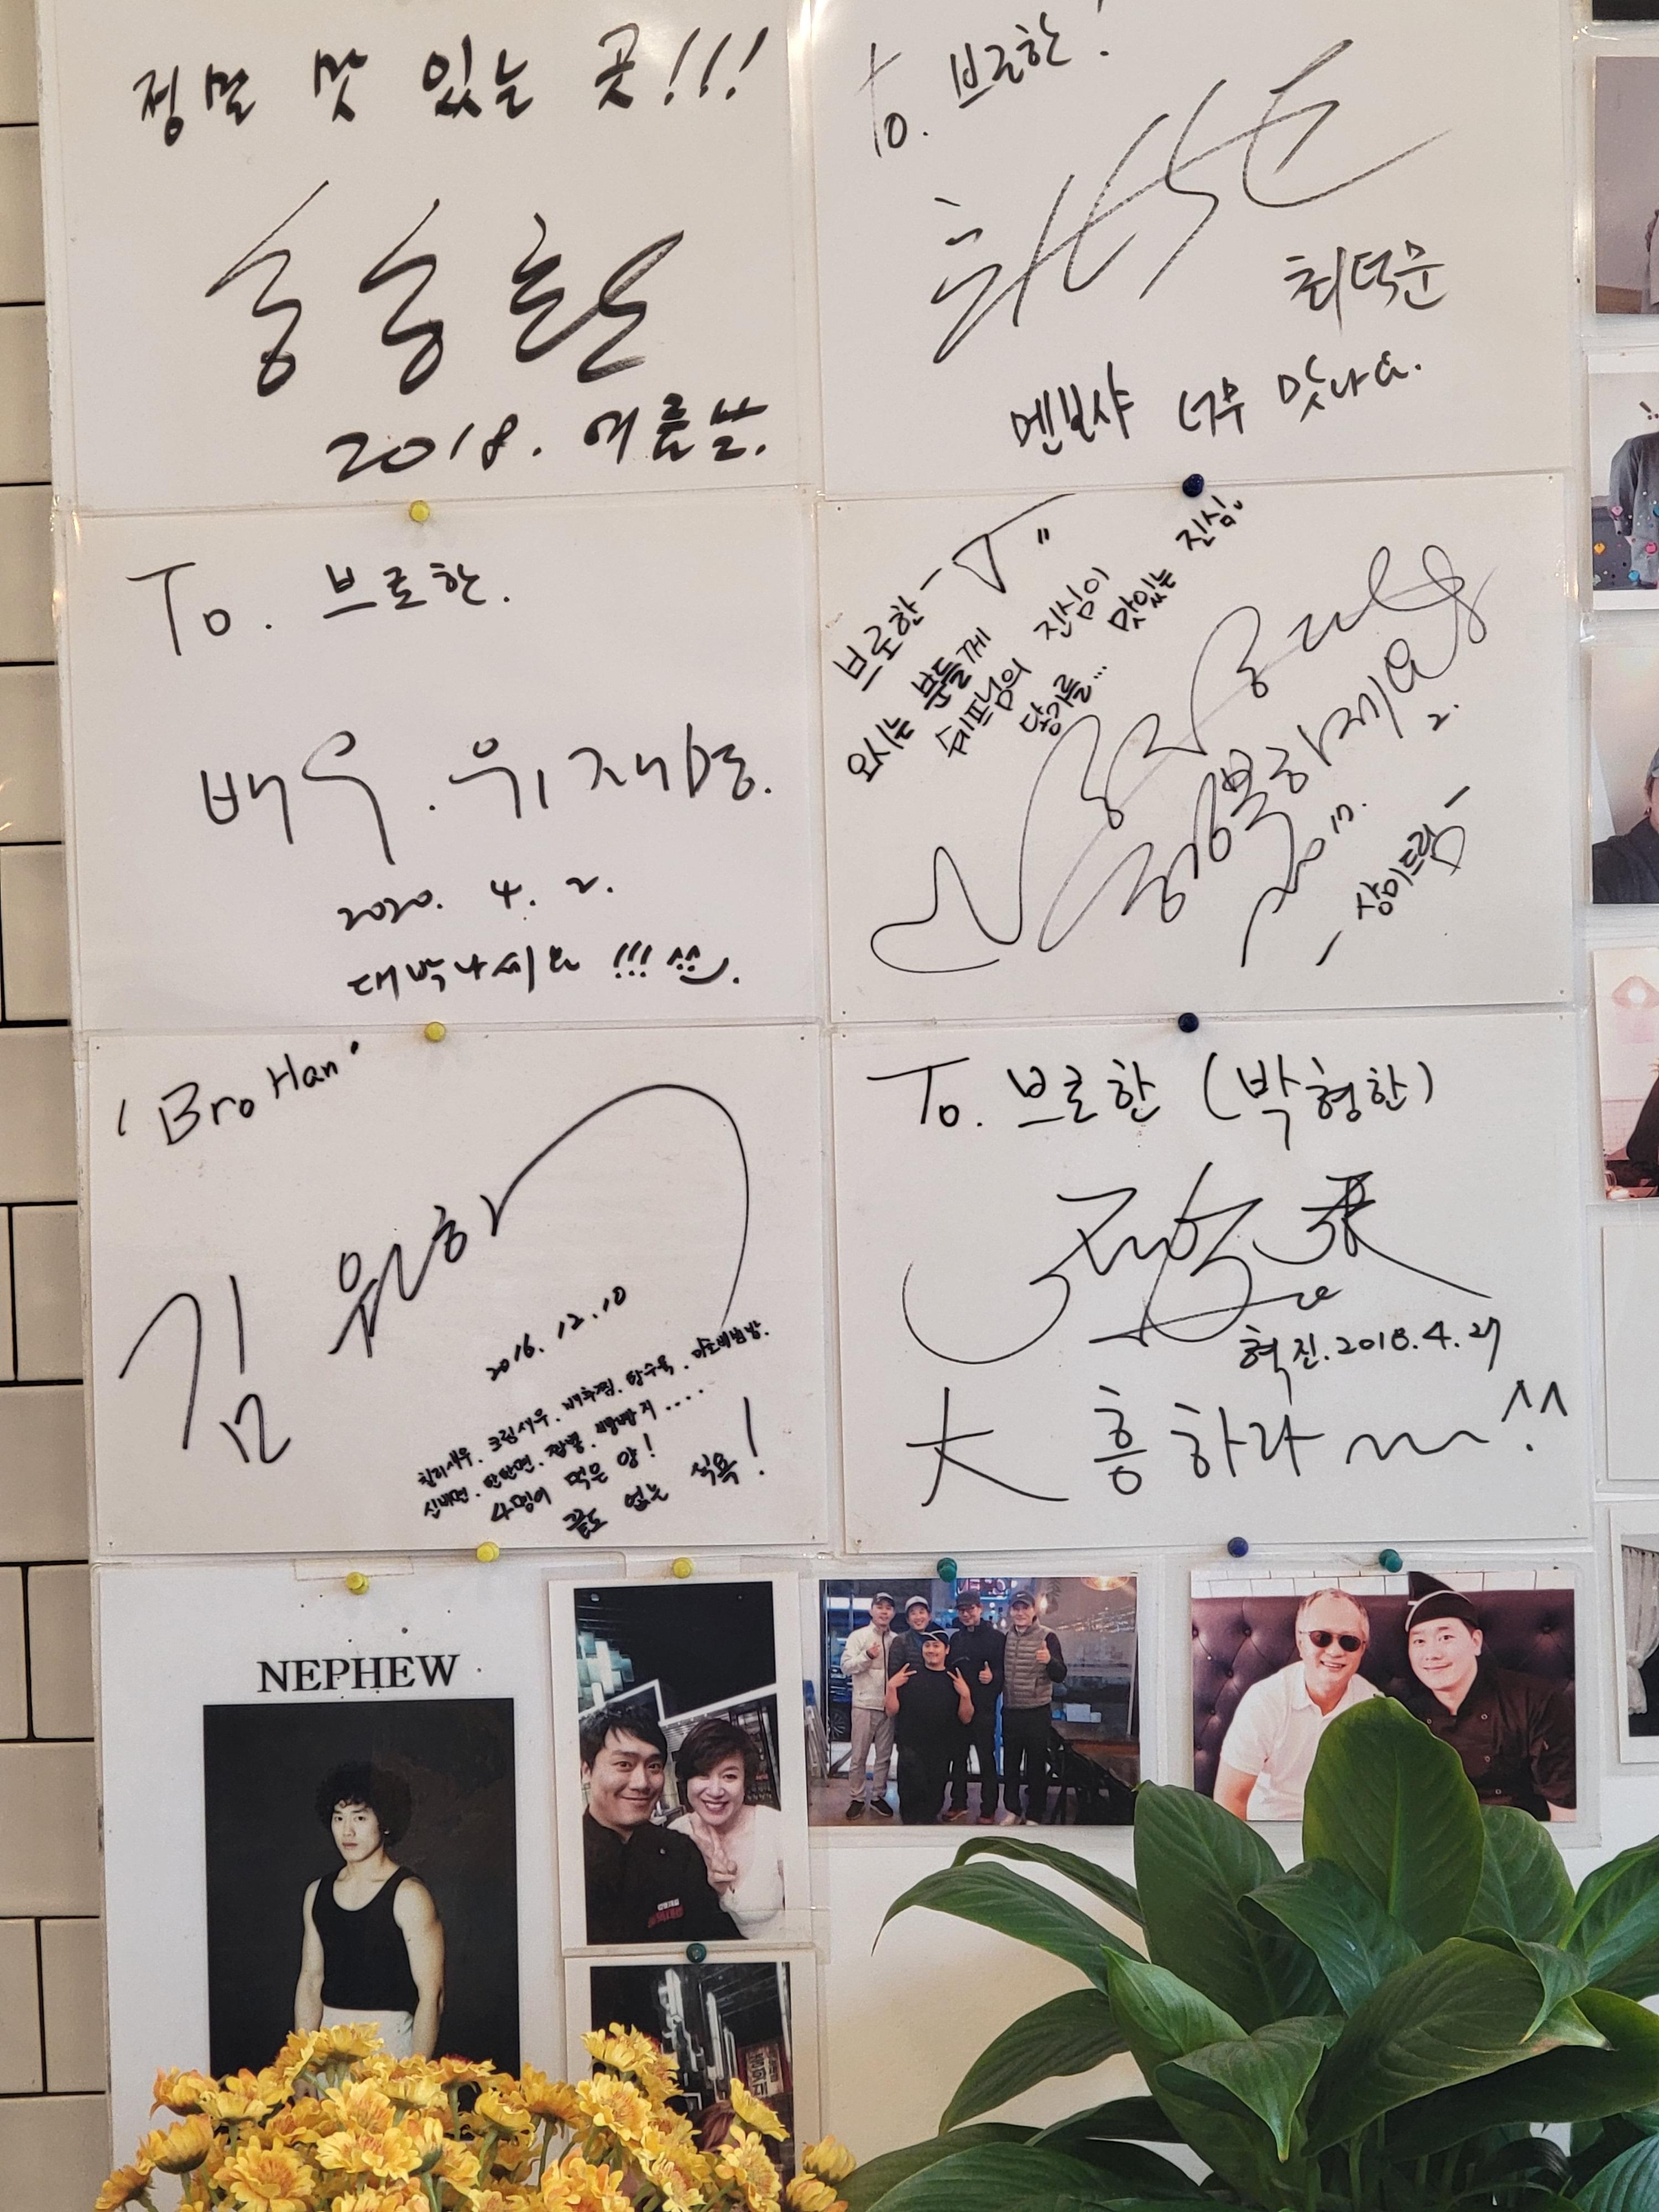 정말 맛 있는 곳!!!
송승환
2018. 여름날.
To. 브로한!
최덕문
멘보샤 너무 맛나요.
To. 브로한.
배우. 위재영.
2020. 4. 2.
대박나세요!!! ^^
브로한-
오시는 분들께
쉐프님의 진심이
담기를... 맛있는 진심.
행복하세요
2017.
-삼미드림-
'Bro Han'
김윤하
2016. 12. 10
칠리새우. 크림새우. 배추찜. 탕수육.
4명이 먹은 양!
끝도 없는 식욕!
To. 브로한 (박형한)
혁진. 2018. 4. 27
大 흥 하라 ~~~ ^^!
NEPHEW